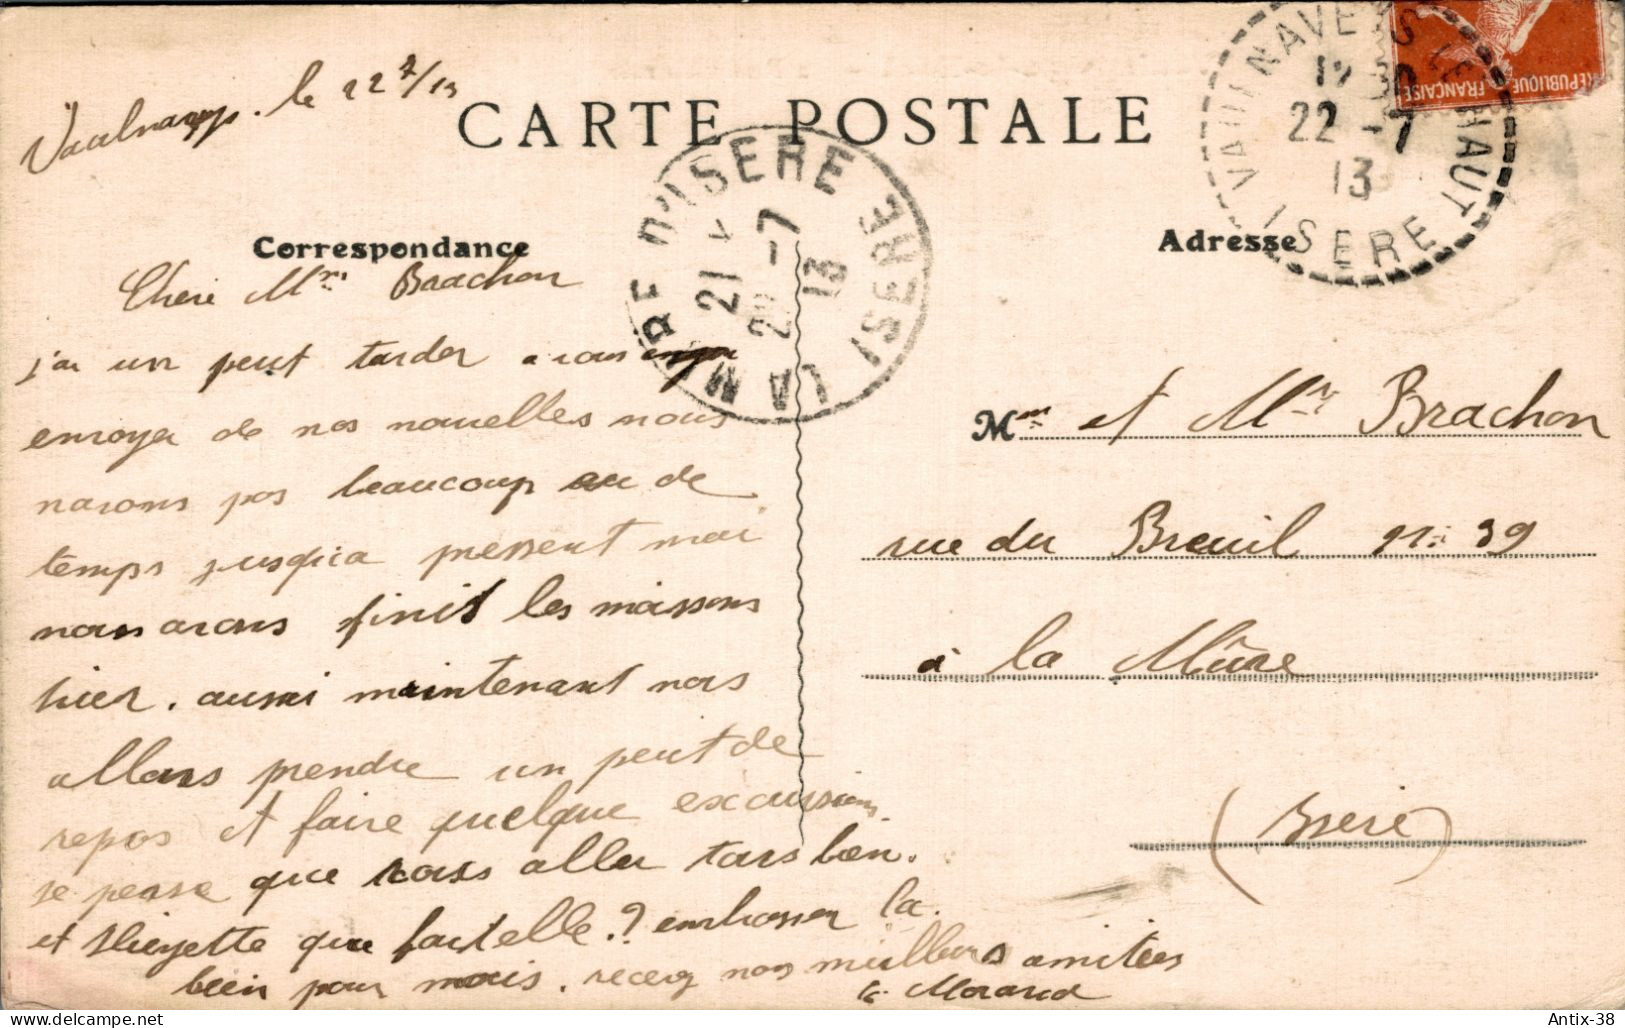 le 22 7/13
CARTE POSTALE
VAULNAVEYS LE HAUT
12
22 - 7
13
ISERE
REPUBLIQUE FRANÇAISE
LA MURE D'ISERE
21
- 7
13
ISERE
Correspondance
Adresse
Chere Mme Brachon
j'ai un peut tarder a vous
envoyer de nos nouvelles nous
navons pas beaucoup au de
temps jusqu'ca pressent mai
nous avons finit les maissons
hier. aussi maintenant nous
allons prendre un peut de
repos et faire quelque excurssions
je pense que vous aller tous bien.
et que fait elle.? embrasser la
bien pour mois. recevez nos meilleurs amitiées
Morand
Mme et Mr Brachon
rue du Breuil n: 39
à la Mûre
(Isere)
delcampe.net
Antix-38